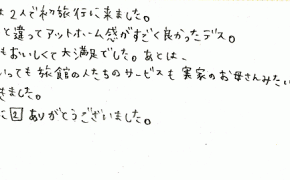 は2人で初旅行に来ました。
と違ってアットホーム感がすごく良かったデス。
もおいしくて大満足でした。あとは、
いっても旅館の人たちのサービスも実家のお母さんみたい
きました。
に2ありがとうございました。